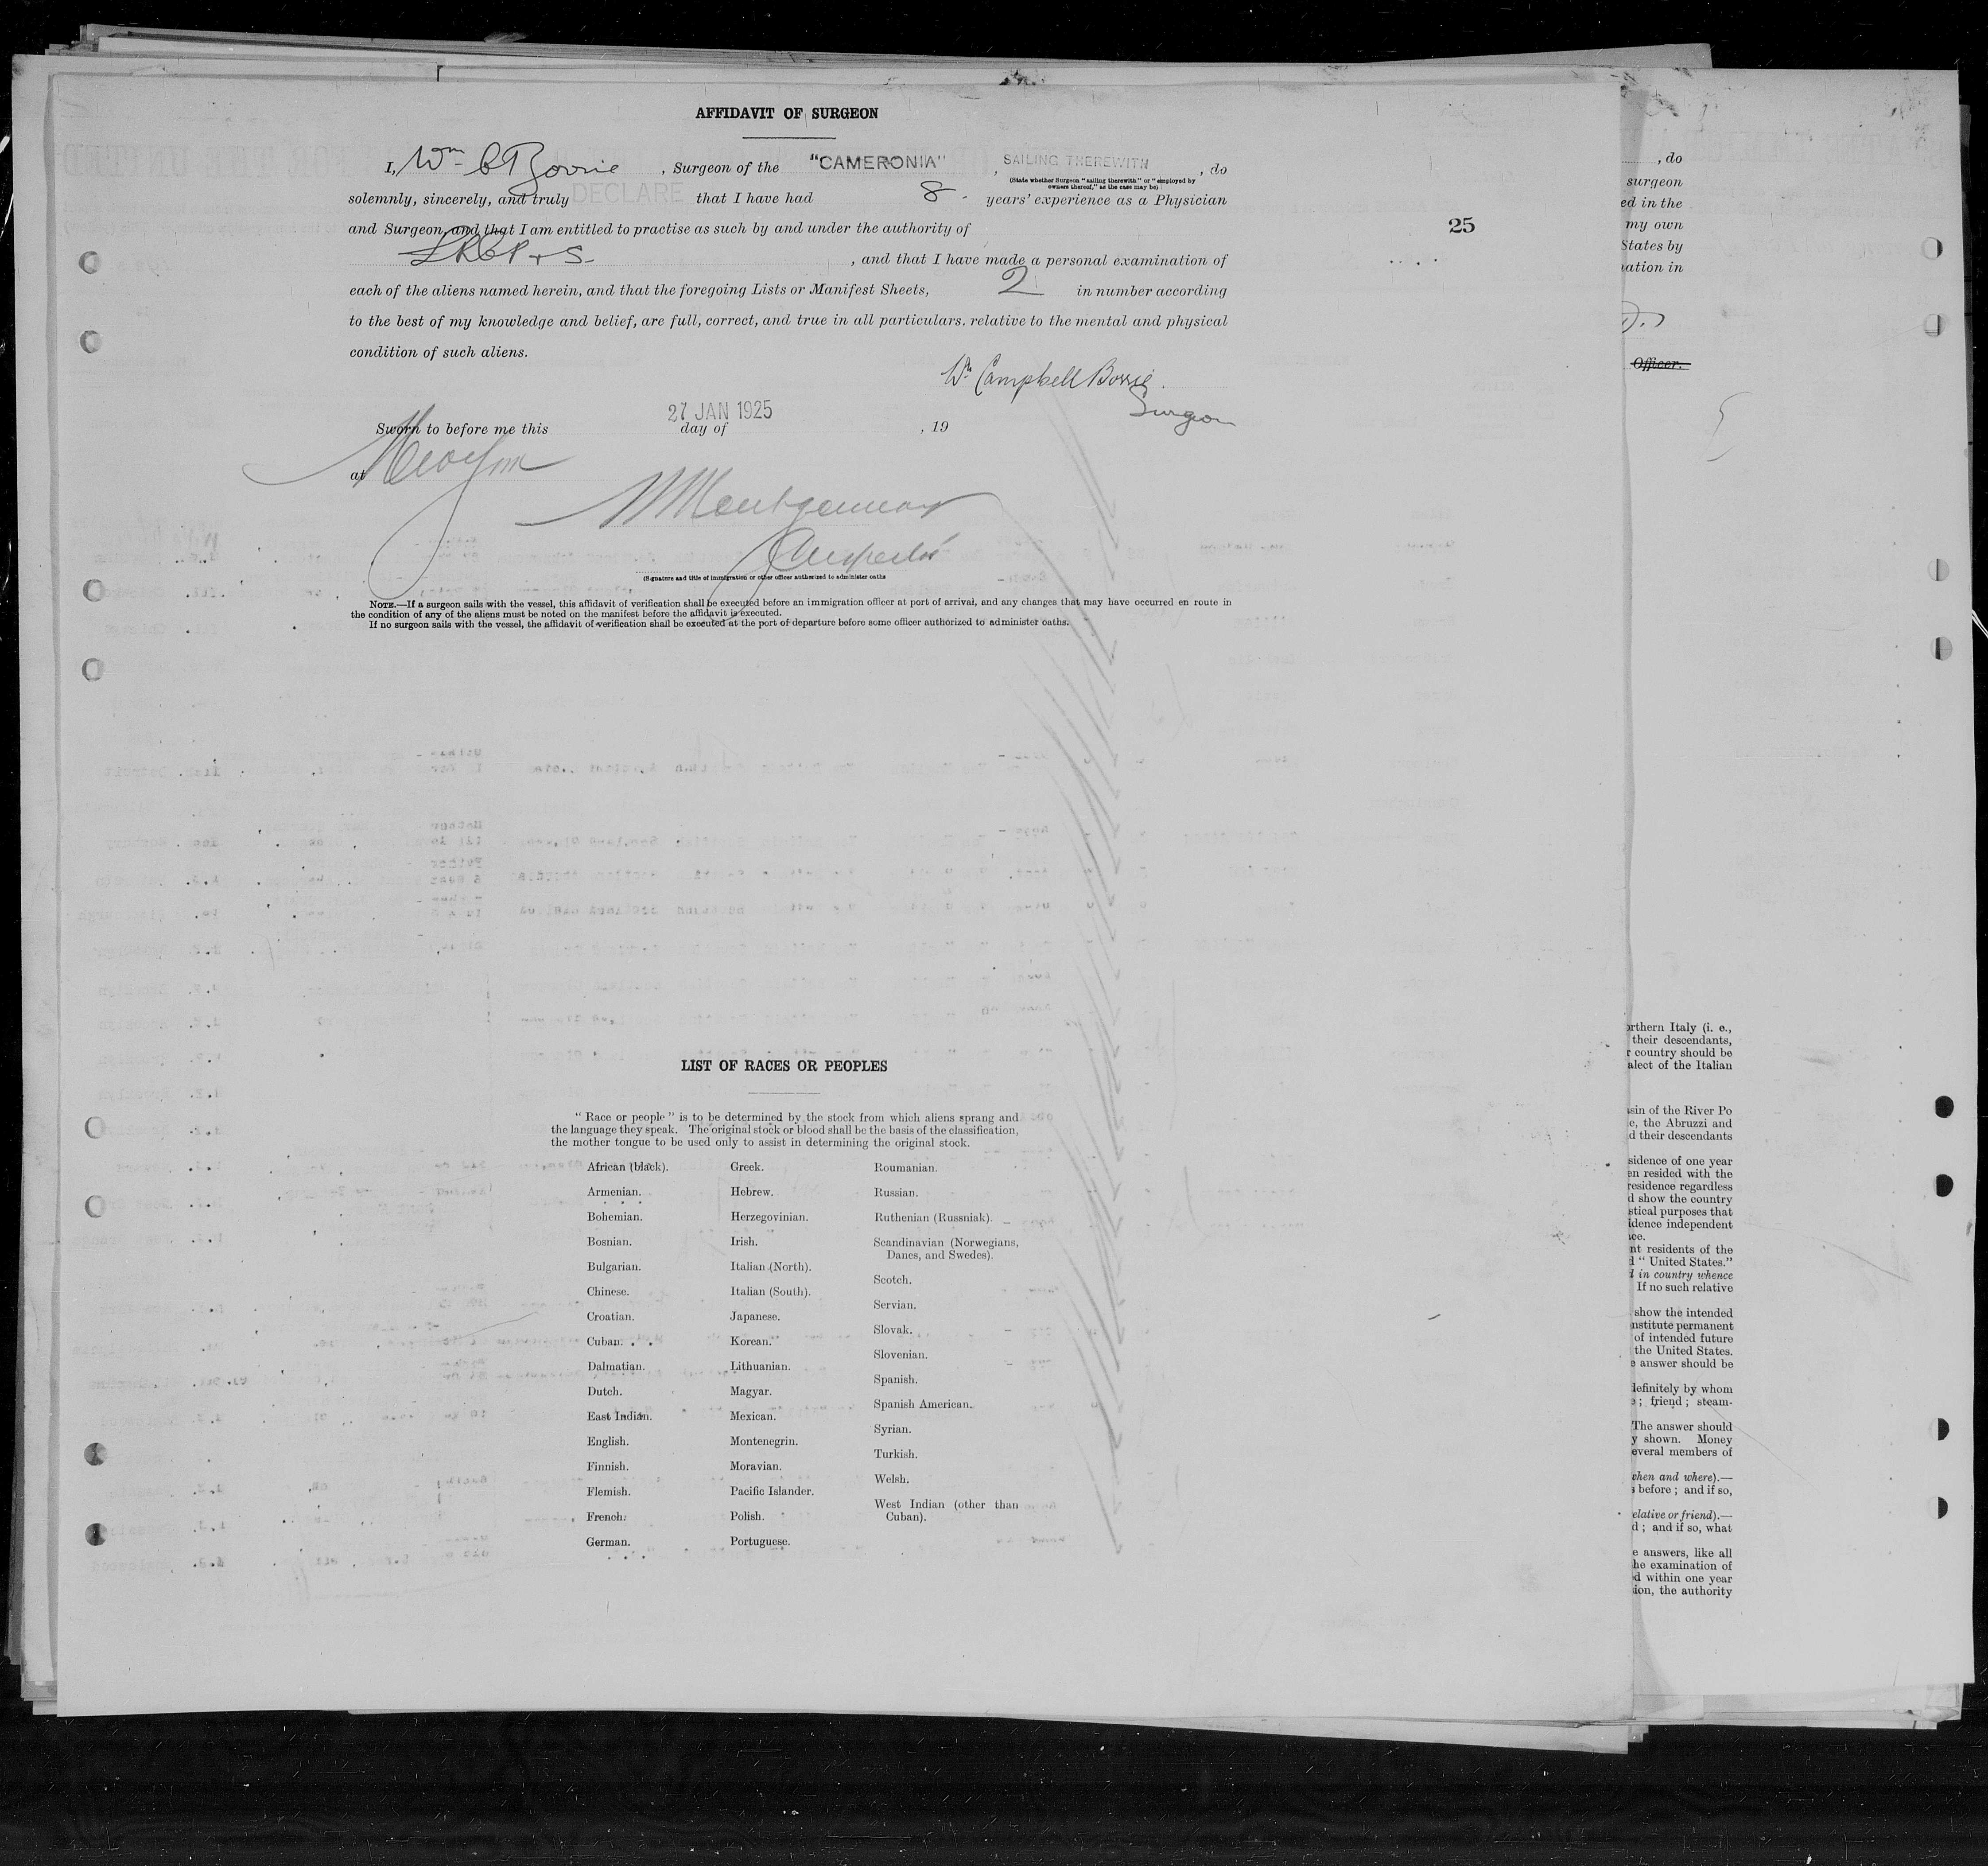 AFFIDAVIT OF SURGEON
I, Wm C Borrie , Surgeon of the "CAMERONIA" , SAILING THEREWITH , do
(State whether Surgeon "sailing therewith" or "employed by
owners thereof," as the case may be)
solemnly, sincerely, and truly DECLARE that I have had 8. years' experience as a Physician
and Surgeon, and that I am entitled to practise as such by and under the authority of
LRCP & S. , and that I have made a personal examination of
each of the aliens named herein, and that the foregoing Lists or Manifest Sheets, 2 in number according
to the best of my knowledge and belief, are full, correct, and true in all particulars, relative to the mental and physical
condition of such aliens.
25
Wm Campbell Borrie.
Surgeon
27 JAN 1925
Sworn to before me this day of , 19
at
Montgomery
Inspector
(Signature and title of immigration or other officer authorized to administer oaths
NOTE.—If a surgeon sails with the vessel, this affidavit of verification shall be executed before an immigration officer at port of arrival, and any changes that may have occurred en route in
the condition of any of the aliens must be noted on the manifest before the affidavit is executed.
If no surgeon sails with the vessel, the affidavit of verification shall be executed at the port of departure before some officer authorized to administer oaths.
LIST OF RACES OR PEOPLES
"Race or people" is to be determined by the stock from which aliens sprang and
the language they speak. The original stock or blood shall be the basis of the classification,
the mother tongue to be used only to assist in determining the original stock.
African (black).
Armenian.
Bohemian.
Bosnian.
Bulgarian.
Chinese.
Croatian.
Cuban.
Dalmatian.
Dutch.
East Indian.
English.
Finnish.
Flemish.
French.
German.
Greek.
Hebrew.
Herzegovinian.
Irish.
Italian (North).
Italian (South).
Japanese.
Korean.
Lithuanian.
Magyar.
Mexican.
Montenegrin.
Moravian.
Pacific Islander.
Polish.
Portuguese.
Roumanian.
Russian.
Ruthenian (Russniak).
Scandinavian (Norwegians,
Danes, and Swedes).
Scotch.
Servian.
Slovak.
Slovenian.
Spanish.
Spanish American.
Syrian.
Turkish.
Welsh.
West Indian (other than
Cuban).
, do
surgeon
ed in the
my own
States by
ation in
Officer.
orthern Italy (i. e.,
their descendants,
r country should be
alect of the Italian
sin of the River Po
e, the Abruzzi and
d their descendants
sidence of one year
en resided with the
residence regardless
d show the country
stical purposes that
idence independent
ce.
nt residents of the
d "United States."
d in country whence
If no such relative
show the intended
nstitute permanent
of intended future
the United States.
e answer should be
definitely by whom
e; friend; steam-
The answer should
y shown. Money
everal members of
when and where).—
s before; and if so,
elative or friend).—
d; and if so, what
e answers, like all
he examination of
d within one year
ion, the authority